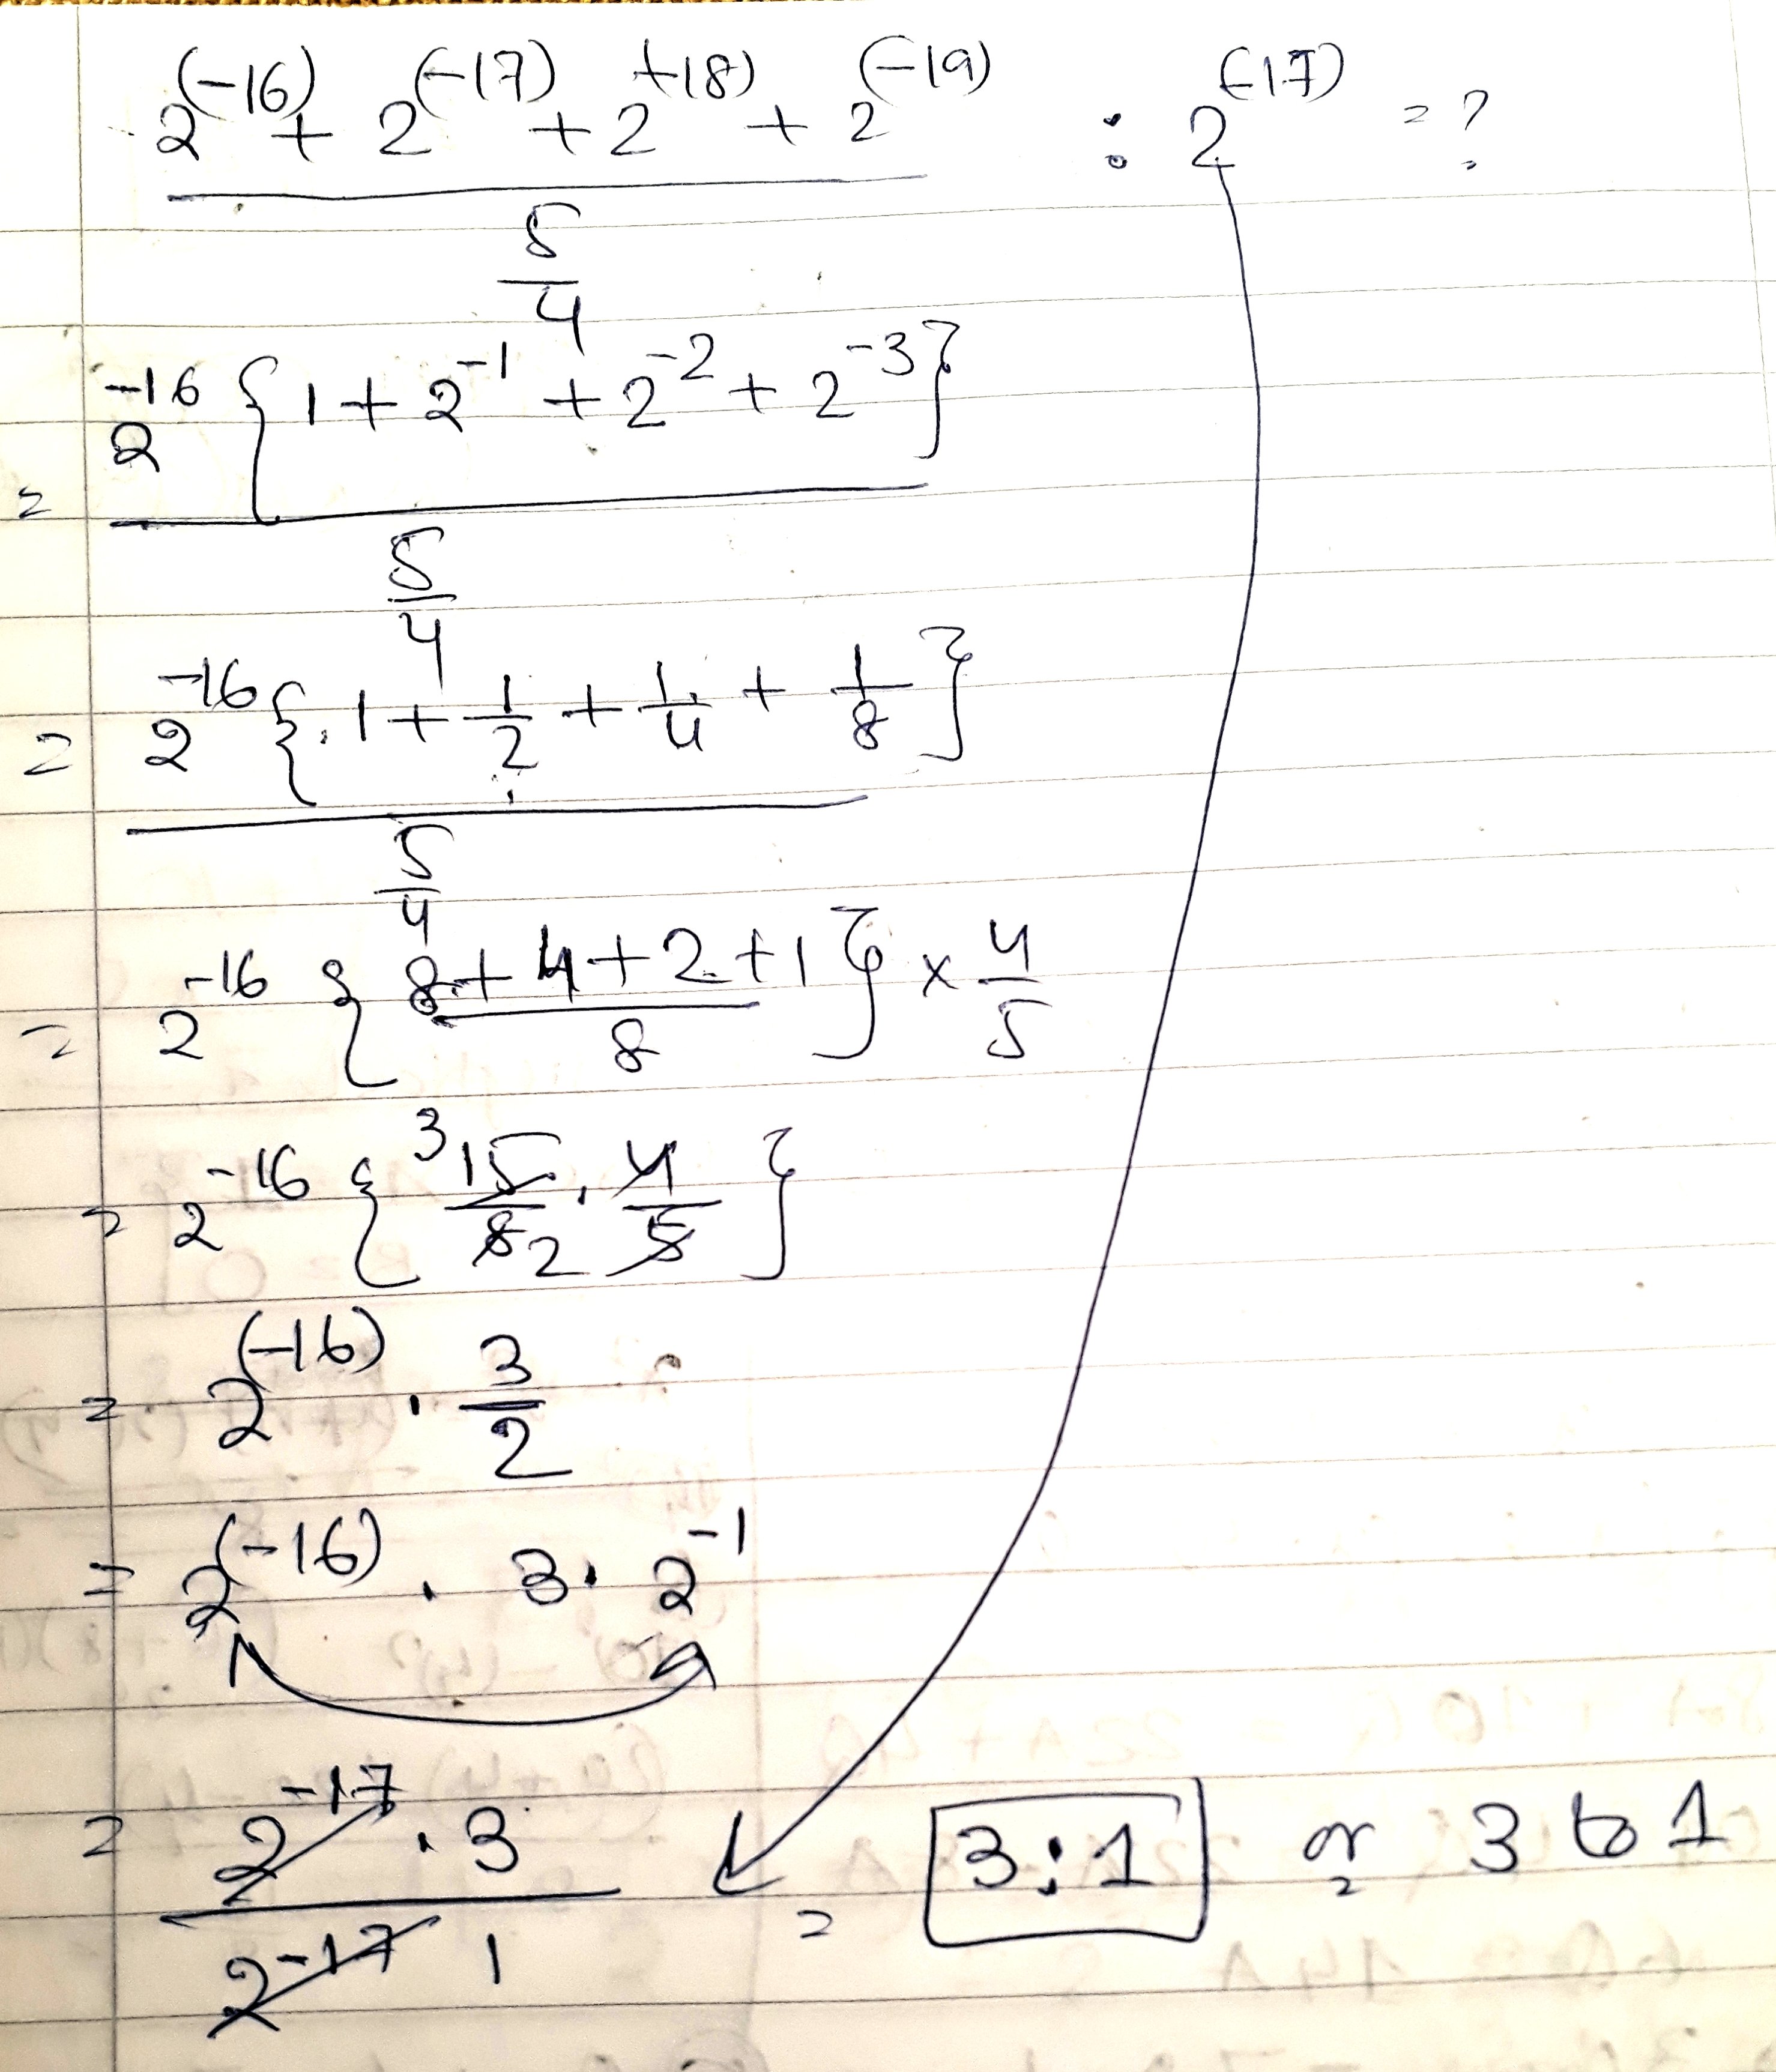 2^(-16) + 2^(-17) + 2^(-18) + 2^(-19) : 2^(-17) = ?
5/4
2^-16 { 1 + 2^-1 + 2^-2 + 2^-3 }
=
5/4
= 2^-16 { 1 + 1/2 + 1/4 + 1/8 }
5/4
= 2^-16 { 8 + 4 + 2 + 1 / 8 } × 4/5
= 2^-16 { 3 15/8 2 . 4/5 }
= 2^(-16) . 3/2
= 2^(-16) . 3 . 2^-1
= 2^-17 . 3 / 2^-17 1 = 3:1 or 3 to 1